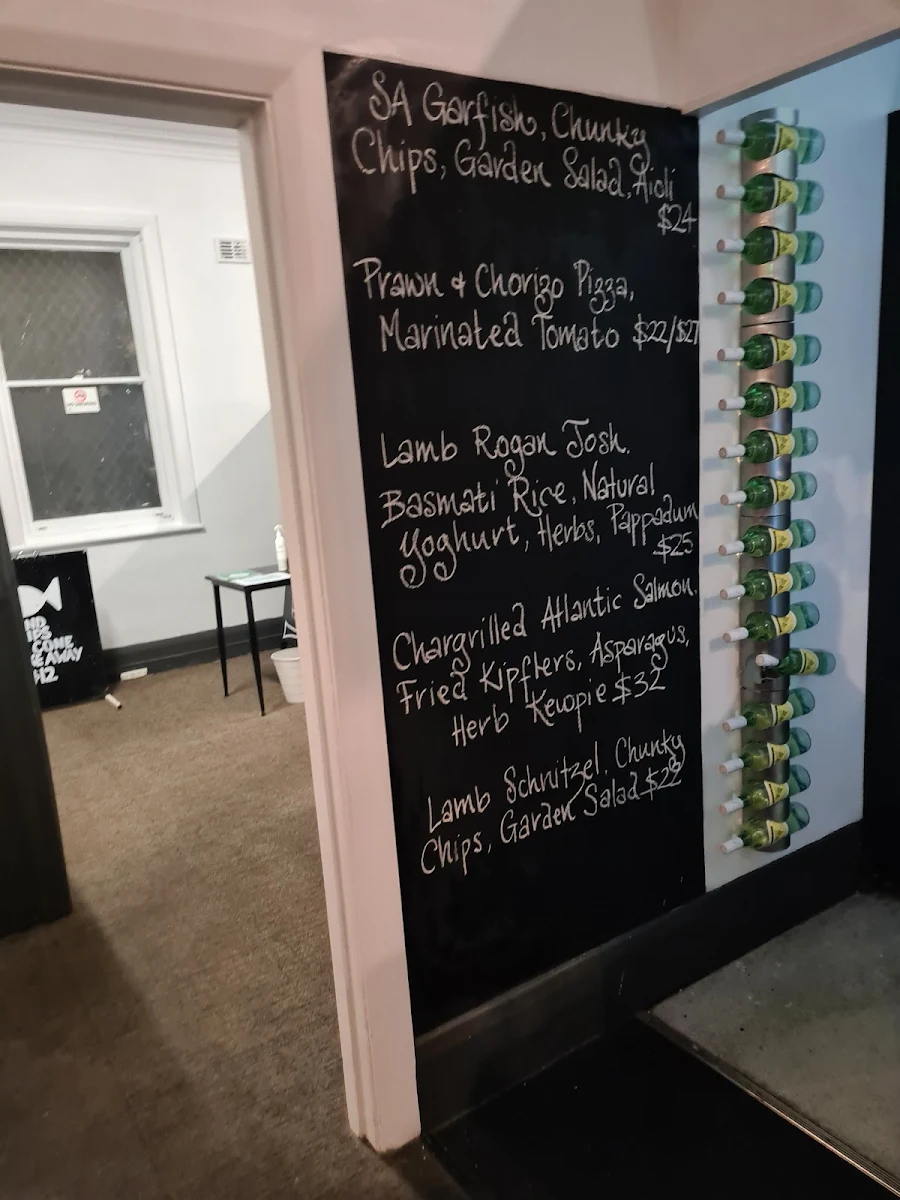 SA Garfish, Chunky
Chips, Garden Salad, Aioli
$24
Prawn & Chorizo Pizza,
Marinated Tomato $22/$27
Lamb Rogan Josh,
Basmati Rice, Natural
Yoghurt, Herbs, Pappadum
$25
Chargrilled Atlantic Salmon,
Fried Kipflers, Asparagus,
Herb Kewpie $32
Lamb Schnitzel, Chunky
Chips, Garden Salad $22
CONE
AWAY
$12